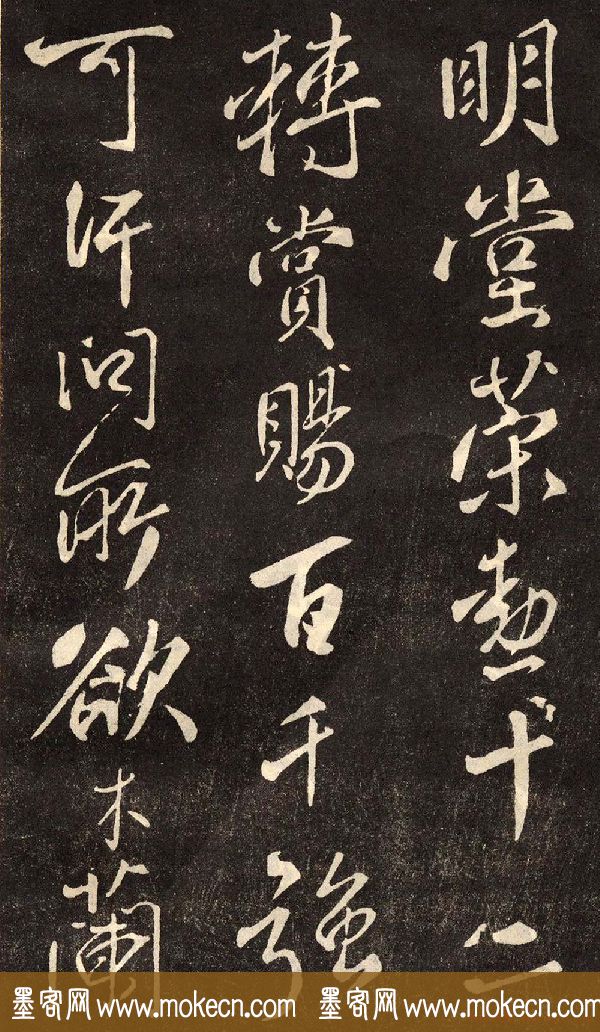 明堂策勳十二
轉賞賜百千強
可汗問所欲木蘭
墨客网 www.mokecn.com 墨客网 www.mokecn.com